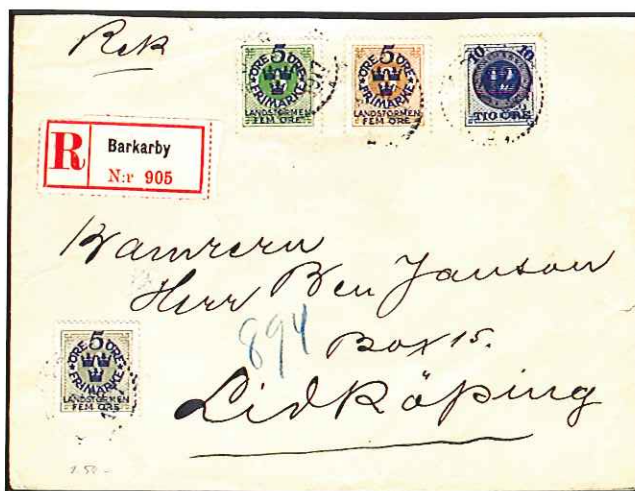 Rek
5
ÖRE ÖRE
FRIMÄRKE
LANDSTORMEN
FEM ÖRE
5
ÖRE ÖRE
FRIMÄRKE
LANDSTORMEN
FEM ÖRE
10 10
12
TIO ÖRE
R
Barkarby
N:r 905
Kamrern
Herr Ben Janson
894
Box 15.
Lidköping
5
ÖRE ÖRE
FRIMÄRKE
LANDSTORMEN
FEM ÖRE
1.50 -